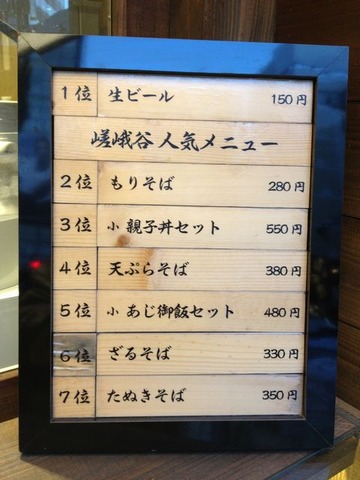 1位 生ビール 150円
嵯峨谷 人気メニュー
2位 もりそば 280円
3位 小 親子丼セット 550円
4位 天ぷらそば 380円
5位 小 あじ御飯セット 480円
6位 ざるそば 330円
7位 たぬきそば 350円